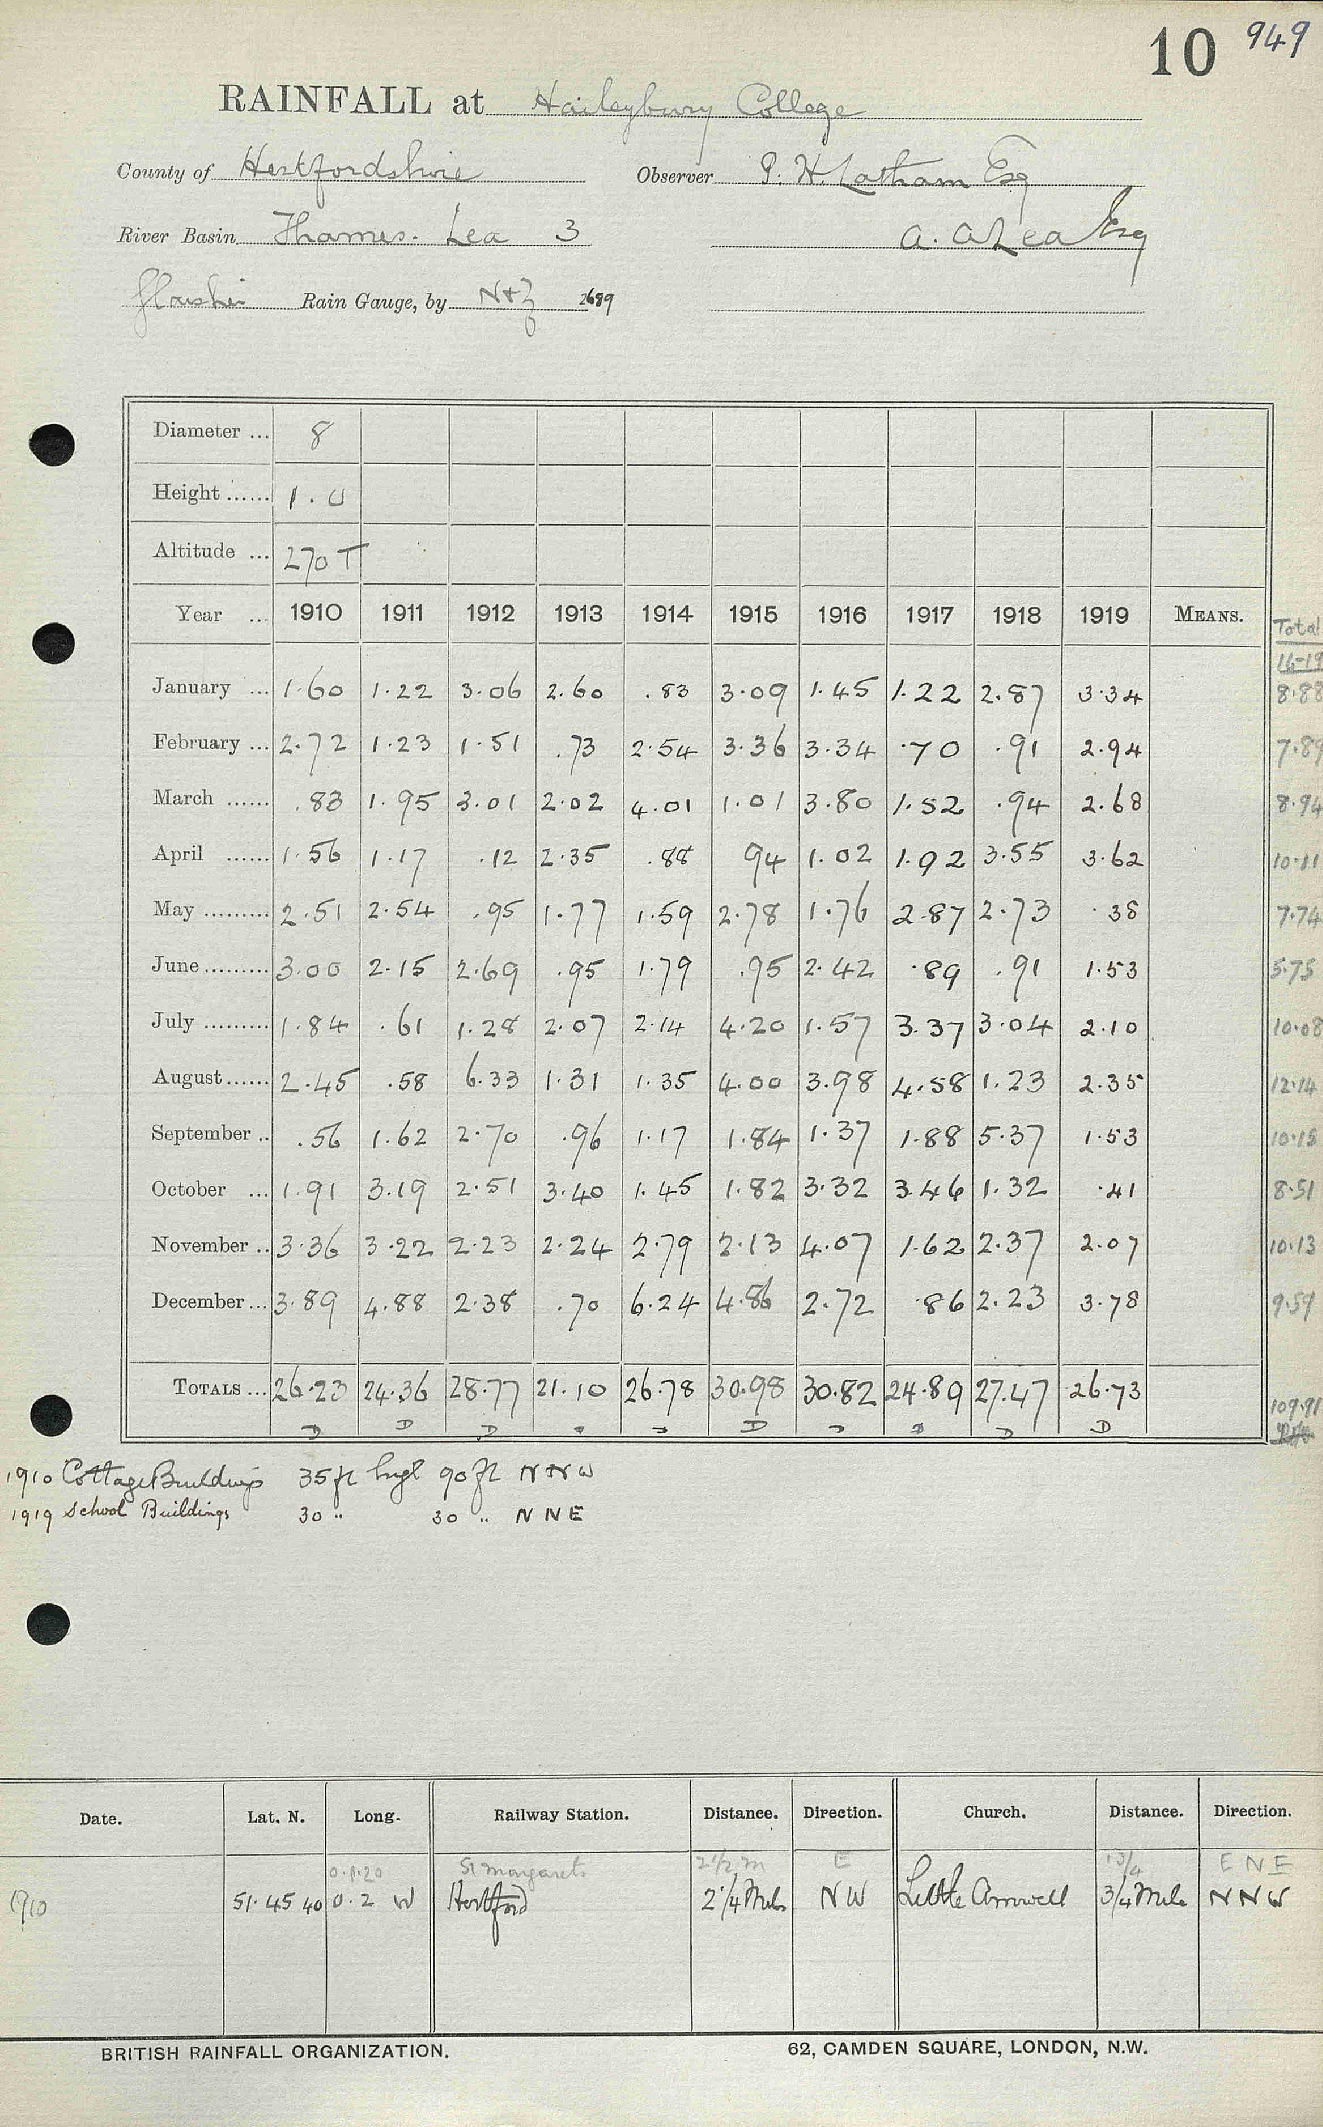 10 949
RAINFALL at Haileybury College
County of Hertfordshire Observer P. H. Latham Esq
River Basin Thames. Lea 3 A. A Lea Esq
Rain Gauge, by N+Z 2689
Diameter ... 8
Height ...... 1.0
Altitude ... 270 T
Year ... 1910 1911 1912 1913 1914 1915 1916 1917 1918 1919 MEANS. Total 16-19
January ... 1.60 1.22 3.06 2.60 .83 3.09 1.45 1.22 2.87 3.34 8.88
February ... 2.72 1.23 1.51 .73 2.54 3.36 3.34 .70 .91 2.94 7.89
March ...... .83 1.95 3.01 2.02 4.01 1.01 3.80 1.52 .94 2.68 8.94
April ...... 1.56 1.17 .12 2.35 .88 94 1.02 1.92 3.55 3.62 10.11
May ......... 2.51 2.54 .95 1.77 1.59 2.78 1.76 2.87 2.73 .38 7.74
June ......... 3.00 2.15 2.69 .95 1.79 .95 2.42 .89 .91 1.53 5.75
July ......... 1.84 .61 1.28 2.07 2.14 4.20 1.57 3.37 3.04 2.10 10.08
August ...... 2.45 .58 6.33 1.31 1.35 4.00 3.98 4.58 1.23 2.35 12.14
September .. .56 1.62 2.70 .96 1.17 1.84 1.37 1.88 5.37 1.53 10.15
October ... 1.91 3.19 2.51 3.40 1.45 1.82 3.32 3.46 1.32 .41 8.51
November .. 3.36 3.22 2.23 2.24 2.79 2.13 4.07 1.62 2.37 2.07 10.13
December ... 3.89 4.88 2.38 .70 6.24 4.86 2.72 .86 2.23 3.78 9.59
TOTALS ... 26.23 24.36 28.77 21.10 26.78 30.98 30.82 24.89 27.47 26.73 109.91
1910 Cottage Buildings 35 ft high 90 ft N N W
1919 School Buildings 30 " 30 " N N E
Date. Lat. N. Long. Railway Station. Distance. Direction. Church. Distance. Direction.
0.1.20 St Margarets 2 1/2 m E 1 3/4 E N E
1910 51.45 40 0.2 W Hertford 2 1/4 Miles N W Little Amwell 3/4 Mile N N W
BRITISH RAINFALL ORGANIZATION. 62, CAMDEN SQUARE, LONDON, N.W.